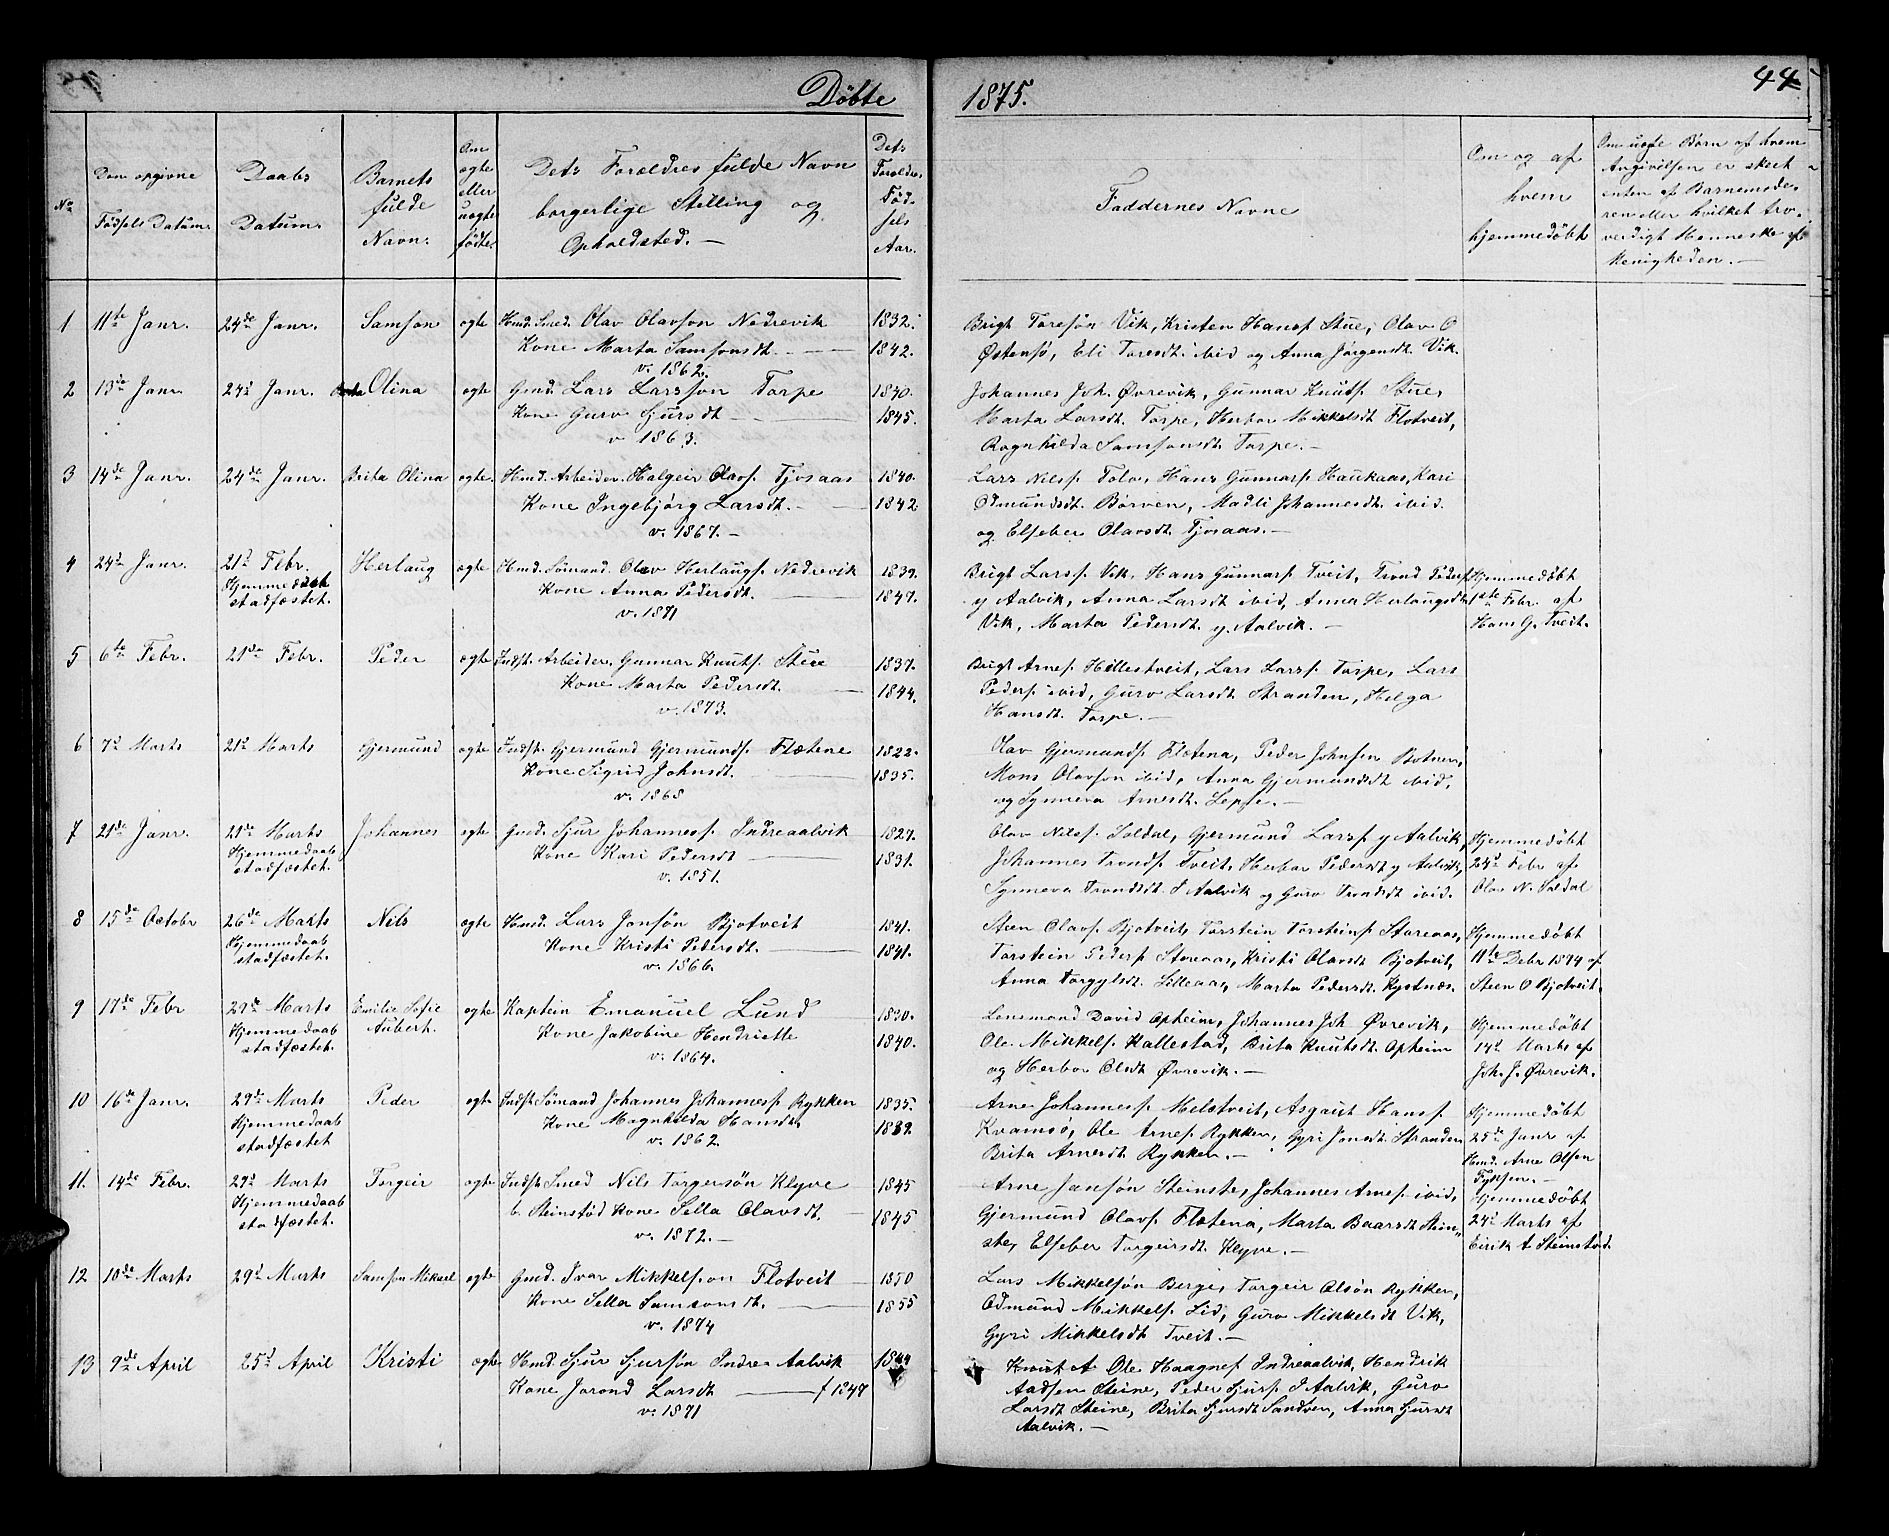 Döbte 1875. 44
No
Den opgivne Födsels Datum.
Daabs Datum.
Barnets fulde Navn.
Om ægte eller uægte födte.
Dets Forældres fulde Navn borgerlige Stilling og Opholdsted. —
Dets Forældres Födsels Aar.
Faddernes Navne
Om og af hvem hjemmedöbt
Om uægte Börn af hvem Angivelsen er skeet enten af Barnemoderen eller hvilket troverdigt Menneske af Menigheden. —
1 11te Janr. 24de Janr. Samson ægte Hmd. Smed. Olav Olavson Nedrevik 1832.
Kone Marta Samsonsdt. — 1842.
v. 1862.
Brigt Toresön Vik, Kristen Hansf. Stue, Olav O
Östensö, Eli Toresdt. ibid og Anna Jörgensdt. Vik.
2 13de Janr. 24d Janr. Olina ægte Gmd. Lars Larsson Torpe 1840.
Kone Guro Sjursdt — 1845.
v. 1863.
Johannes Joh. Övrevik, Gunnar Knutsf. Stue,
Marta Larsdt. Torpe, Herbor Mikkelsdt Flotveit,
Ragnhilda Samsonsdt. Torpe. —
3 14de Janr. 24de Janr. Brita Olina ægte. Hmd. Arbeider. Halgeir Olavs. Tjosaas 1840.
Kone Ingebjörg Larsdt. — 1842
v. 1867. —
Lars Nilsf. Tolo, Hans Gunnarsf. Haukaas, Kari
Odmundsdt. Börven, Madli Johannesdt. ibid.
og Elseber Olavsdt. Tjosaas. —
4 24d Janr. 21d Febr. Herlaug ægte Hmd. Sömand. Olav Herlaugsf. Nedrevik 1839.
Hjemmedaab stadfæstet.
Kone Anna Pedersdt. — 1847.
v. 1871
Brigt Larsf. Vik, Hans Gunnarsf. Tveit, Trond Pedersf.
y Aalvik, Anna Larsdt ibid, Anna Herlaugsdt
Vik, Marta Pedersdt. y. Aalvik. —
Hjemmedöbt
1ste Febr. af
Hans G. Tveit.
5 6te Febr. 21de Febr. Peder ægte Indst. Arbeider. Gunnar Knutsf. Stue 1837.
Kone Marta Pedersdt. — 1844.
v. 1873.
Brigt Arnesf. Hillestveit, Lars Larsf. Torpe, Lars
Pedersf. ibid, Guro Larsdt. Stranden, Helga
Hansdt. Torpe. —
6 7d Marts 21d Marts Gjermund ægte Indst. Gjermund Gjermundsf. Flætene 1822.
Kone Sigrid Johnsdt. — 1835.
v. 1868
Olav Gjermundsf. Flætena, Peder Johnsen Botnen,
Mons Olavson ibid, Anna Gjermundsdt ibid,
og Synneva Arnesdt. Lepse. —
7 21de Janr. 21de Marts Johannes ægte Gmd. Sjur Johannesf. Indreaalvik 1827.
Hjemmedaab stadfæstet.
Kone Kari Pedersdt — 1831.
v. 1851.
Olav Nilsf. Soldal, Gjermund Larsf. y Aalvik,
Johannes Trondsf. Tveit, Herbor Pedersdt y Aalvik,
Synneva Trondsdt. I Aalvik og Guro Trondsdt ibid.
Hjemmedöbt
24d Febr af
Olav N. Soldal
8 15de Octobr 26de Marts Nils ægte Hmd. Lars Jonsön Bjotveit 1841.
Hjemmedaab stadfæstet.
Kone Kristi Pedersdt. — 1841.
v. 1866.
Steen Olavsf. Bjotveit, Torstein Torsteinsf. Storeaas,
Torstein Pedersf. Storeaas, Kristi Olavsdt Bjotveit,
Anna Torgylsdt. Lilleaas, Marta Pedersdt.
Hjemmedöbt
11te Debr 1874 af
Steen O Bjotveit.
9 17de Febr 29de Marts Emilie Sofie Aubert. ægte Kaptein Emanuel Lund 1830.
Hjemmedaab stadfæstet.
Kone Jakobine Hendriette 1840.
v. 1864.
Lensmand David Opheim, Johannes Joh Övrevik,
Ole Mikkelsf. Kallestad, Brita Knutsdt. Opheim
og Herbor Olsdt Övrevik. —
Hjemmedöbt
14d Marts af
Joh. J. Övrevik.
10 16de Janr. 29de Marts Peder ægte Indst. Sömand Johannes Johannesf. Rykken 1835.
Hjemmedaab stadfæstet
Kone Magnhilda Hansdt. 1839.
v. 1862.
Arne Johannesf. Melstveit, Asgaut Hansf.
Kvamsö, Ole Arnesf. Rykken, Gyri Jonsdt. Stranden
Brita Arnesdt Rykken. —
Hjemmedöbt
25de Janr af
Hmd. Arne Olsen
Fyksen. —
11. 14de Febr. 29d Marts Torgeir ægte Indst. Smed Nils Torgersön Klyve 1845
Hjemmedaab stadfæstet.
b. Steinstöd Kone Sella Olavsdt. 1845
v. 1872. —
Arne Jansön Steinstö, Johannes Arnesf. ibid,
Gjermund Olavsf. Flætena, Marta Baarsdt Stein-
stö, Elseber Torgeirsdt. Klyve. —
Hjemmedöbt
24d Marts af
Eirik A Steinstöd.
12 10de Marts 29d Marts Samson Mikael ægte Gmd. Ivar Mikkelson Flotveit 1850
Kone Sella Samsonsdt. — 1855
v. 1874
Lars Mikkelsön Berge, Torgeir Olsön Rykken,
Odmund Mikkelsf. Lid, Guro Mikkelsdt Vik,
Gyri Mikkelsdt Tveit. —
13 9de April 25d April Kristi ægte Hmd. Sjur Sjursön Indre Aalvik 1844
Kone Jorond Larsdt — f 1847
v. 1871
Knut A Ole Haagnesf. Indreaalvik, Hendrik
Aadsen Steine, Peder Sjursf. I Aalvik, Guro
Larsdt Steine, Brita Sjursdt Sandven, Anna Sjursdt
Aalvik. —